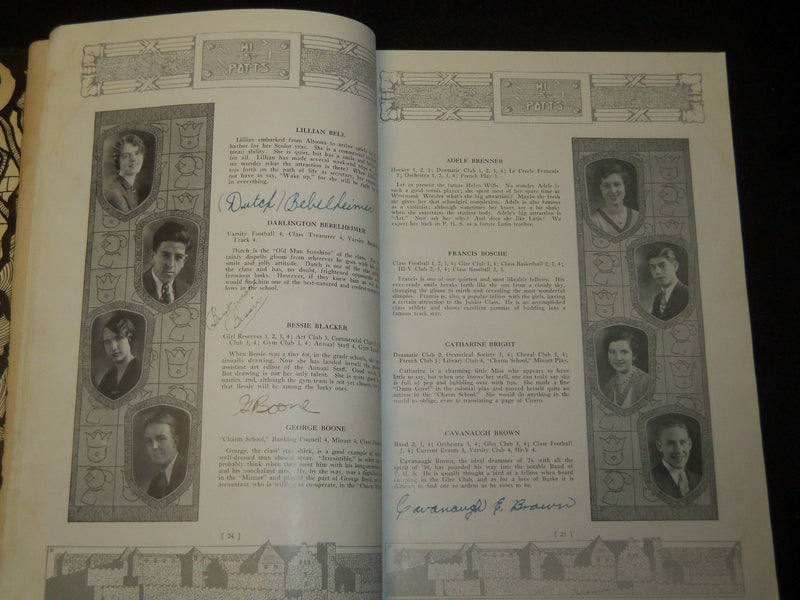 MI
S
POTTS
LILLIAN BELL
Lillian embarked from Altoona to arrive safely in
harbor for her Senior year. She is a commercial
mean ability. She is quiet, but has a smile and
for all. Lillian has made several week-end
we wonder what the attraction is there? When
ters forth on the path of life as secretary, her
not have to say, "Wake up," for she will be right
in everything.
(Dutch) Bebelheimer
DARLINGTON BEBELHEIMER
Varsity Football 4, Class Treasurer 4, Varsity
Track 4.
Dutch is the "Old Man Sunshine" of the class.
tainly dispells gloom from wherever he goes with his
smile and jolly attitude. Dutch is one of the
the class and has, no doubt, frightened
ferocious looks. However, if they knew him as we
would find him one of the best-natured and
lows in the school.
Bessie
BESSIE BLACKER
Girl Reserves 1, 2, 3, 4; Art Club 3, Commercial Club
3, 4; Gym Club 3, 4; Annual Staff 4, Gym
When Bessie was a tiny tot, in the grade schools, she
tinually drawing. Now she has landed herself the
assistant art editor of the Annual Staff. Good
But drawing is not her only talent. She is quite
nastics, and, although the gym team is not yet chosen,
that Bessie will be among the lucky ones.
G Boone
GEORGE BOONE
"Charm School," Banking Council 4, Minuet 4, Class
George, the class' star shiek, is a good example of
well-dressed man should wear. "Irresistible," is what
probably think when they meet him with his long
and his nonchalent airs. He, by the way, was a dignified
in the "Minuet" and played the part of George Boyd, an
accountant who is willing to co-operate, in the "Charm
[ 24 ]
MI
S
POTTS
ADELE BRENNER
Hockey 1, 2, 3; Dramatic Club 1, 2, 3, 4; Le Cercle Francais
3; Orchestra 1, 2, 3, 4; French Play 3.
Let us present the future Helen Wills. No wonder Adele
is such a good tennis player; she spent most of her spare time at
Westwood. Wonder what's the big attraction? Maybe the fresh
air gives her that schoolgirl complexion. Adele is also famous
as a violinist; although sometimes her bows are a bit shaky
when she entertains the student body. Adele's big attraction is
"Art." Now ask her why? And does she like Latin? We
expect her back in P. H. S. as a future Latin teacher.
FRANCIS BOSCHE
Class Football 2, 3, 4; Glee Club 3, 4; Class Basketball 2, 3, 4;
Hi-Y Club 2, 3, 4; Class Baseball 2, 3.
Francis is one of our quietest and most likeable fellows. His
ever-ready smile breaks forth like the sun from a cloudy sky,
changing the gloom to mirth and revealing the most wonderful
dimples. Francis is, also a popular fellow with the girls, having
a certain attraction to the Junior Class. He is an accomplished
class athlete and shows excellent promise of budding into a
famous track star.
CATHARINE BRIGHT
Dramatic Club 2, Oratorical Society 3, 4; Choral Club 3, 4;
French Club 3; Library Club 4, "Charm School," Minuet Play.
Catharine is a charming little Miss who appears to have
little to say, but when one knows her well, one can truly say she
is full of pep and bubbling over with fun. She made a fine
"Dame Gove" in the colonial play and proved herself quite an
actress in the "Charm School." She would do anything in the
world to oblige, even to translating a page of Cicero.
CAVANAUGH BROWN
Band 2, 3, 4; Orchestra 3, 4; Glee Club 3, 4; Class Football
3, 4; Current Events 1, Varsity Club 4, Hi-Y 4.
Cavanaugh Brown, the ideal drummer of '74 with all the
spirit of '56, has pounded his way into the notable Band of
P. H. S. He is usually thought a bird of a fellow when heard
chirping in the Glee Club, and as for a love of Burke it is
difficult to find one so ardent as he vows to be.
Cavanaugh E. Brown
[ 25 ]